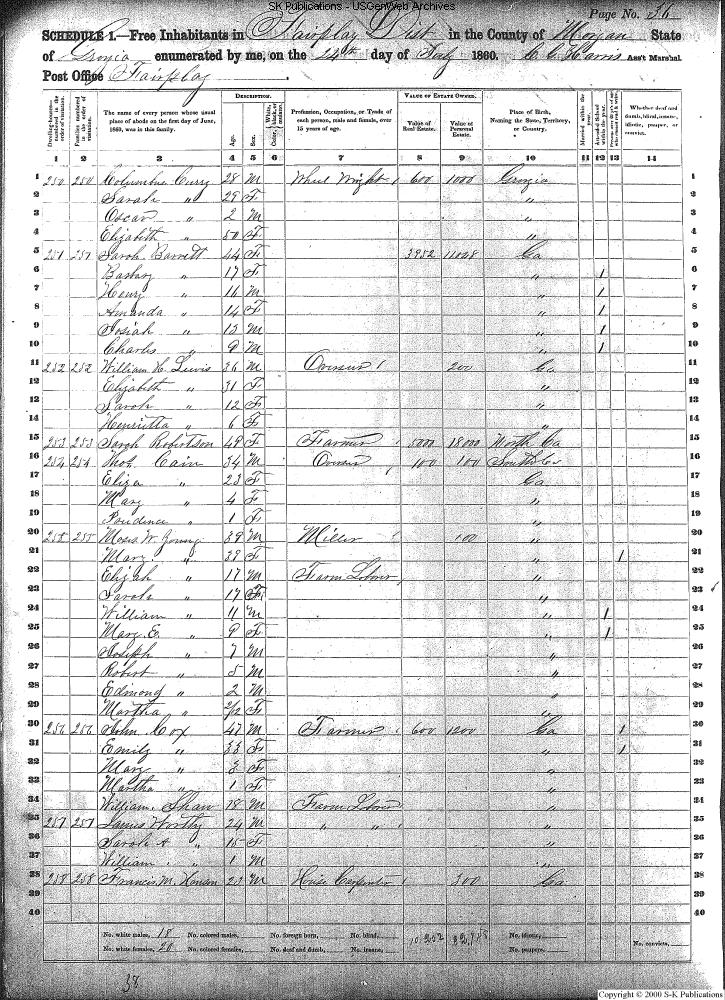 SK Publications - USGenWeb Archives
Page No. 36
SCHEDULE 1.—Free Inhabitants in Fairplay Dist in the County of Morgan State
of Georgia enumerated by me, on the 24th day of July 1860. C. C. Harris Ass't Marshal.
Post Office Fairplay
Dwelling-houses—numbered in the order of visitation.
Families numbered in the order of visitation.
The name of every person whose usual place of abode on the first day of June, 1860, was in this family.
DESCRIPTION.
Age.
Sex.
Color, White, black, or mulatto.
Profession, Occupation, or Trade of each person, male and female, over 15 years of age.
VALUE OF ESTATE OWNED.
Value of Real Estate.
Value of Personal Estate.
Place of Birth, Naming the State, Territory, or Country.
Married within the year.
Attended School within the year.
Whether deaf and dumb, blind, insane, idiotic, pauper, or convict.
1 2 3 4 5 6 7 8 9 10 11 12 13 14
1 250 250 Columbus Curry 28 M Wheel Wright 600 1000 Georgia 1
2 Sarah " 29 F " 2
3 Oscar " 2 M " 3
4 Elizabeth " 50 F " 4
5 251 251 Sarah Barrett 44 F 3952 11028 Ga 5
6 " 17 F " 1 6
7 Henry " 16 M " 1 7
8 Amanda " 14 F " 1 8
9 Josiah " 13 M " 1 9
10 Charles " 9 M " 1 10
11 252 252 William H. Lewis 36 M 200 Ga 11
12 Elizabeth " 31 F " 12
13 Sarah " 12 F " 13
14 Henrietta " 6 F " 14
15 253 253 Sarah Robertson 48 F Farmer 5000 18000 North Ca 15
16 254 254 Thos. Cain 34 M 100 100 South Ca 16
17 Eliza " 23 F Ga 17
18 Mary " 4 F " 18
19 Prudence " 1 F " 19
20 255 255 Moses W. Young 39 M Miller 100 " 20
21 Mary " 39 F " 1 21
22 Elijah " 17 M Farm Laborer " 22
23 Sarah " 17 F " 23
24 William " 11 M " 1 24
25 Mary E. " 9 F " 1 25
26 Joseph " 7 M " 26
27 Robert " 5 M " 27
28 Edmond " 2 M " 28
29 Martha " 2/12 F " 29
30 256 256 John Cox 47 M Farmer 600 1200 Ga 1 30
31 Emily " 33 F " 1 31
32 Mary " 3 F " 32
33 Martha " 1 F " 33
34 William Shaw 18 M Farm Laborer " 34
35 257 257 James Worthy 24 M " " " 35
36 Sarah A " 15 F " 36
37 William " 1 M " 37
38 258 258 Francis M. 23 M House Carpenter 300 Ga 38
39 39
40 40
No. white males, 18 No. colored males, No. foreign born, No. blind, No. idiotic,
No. white females, 20 No. colored females, No. deaf and dumb, No. insane, No. paupers, No. convicts,
38
Copyright © 2000 S-K Publications